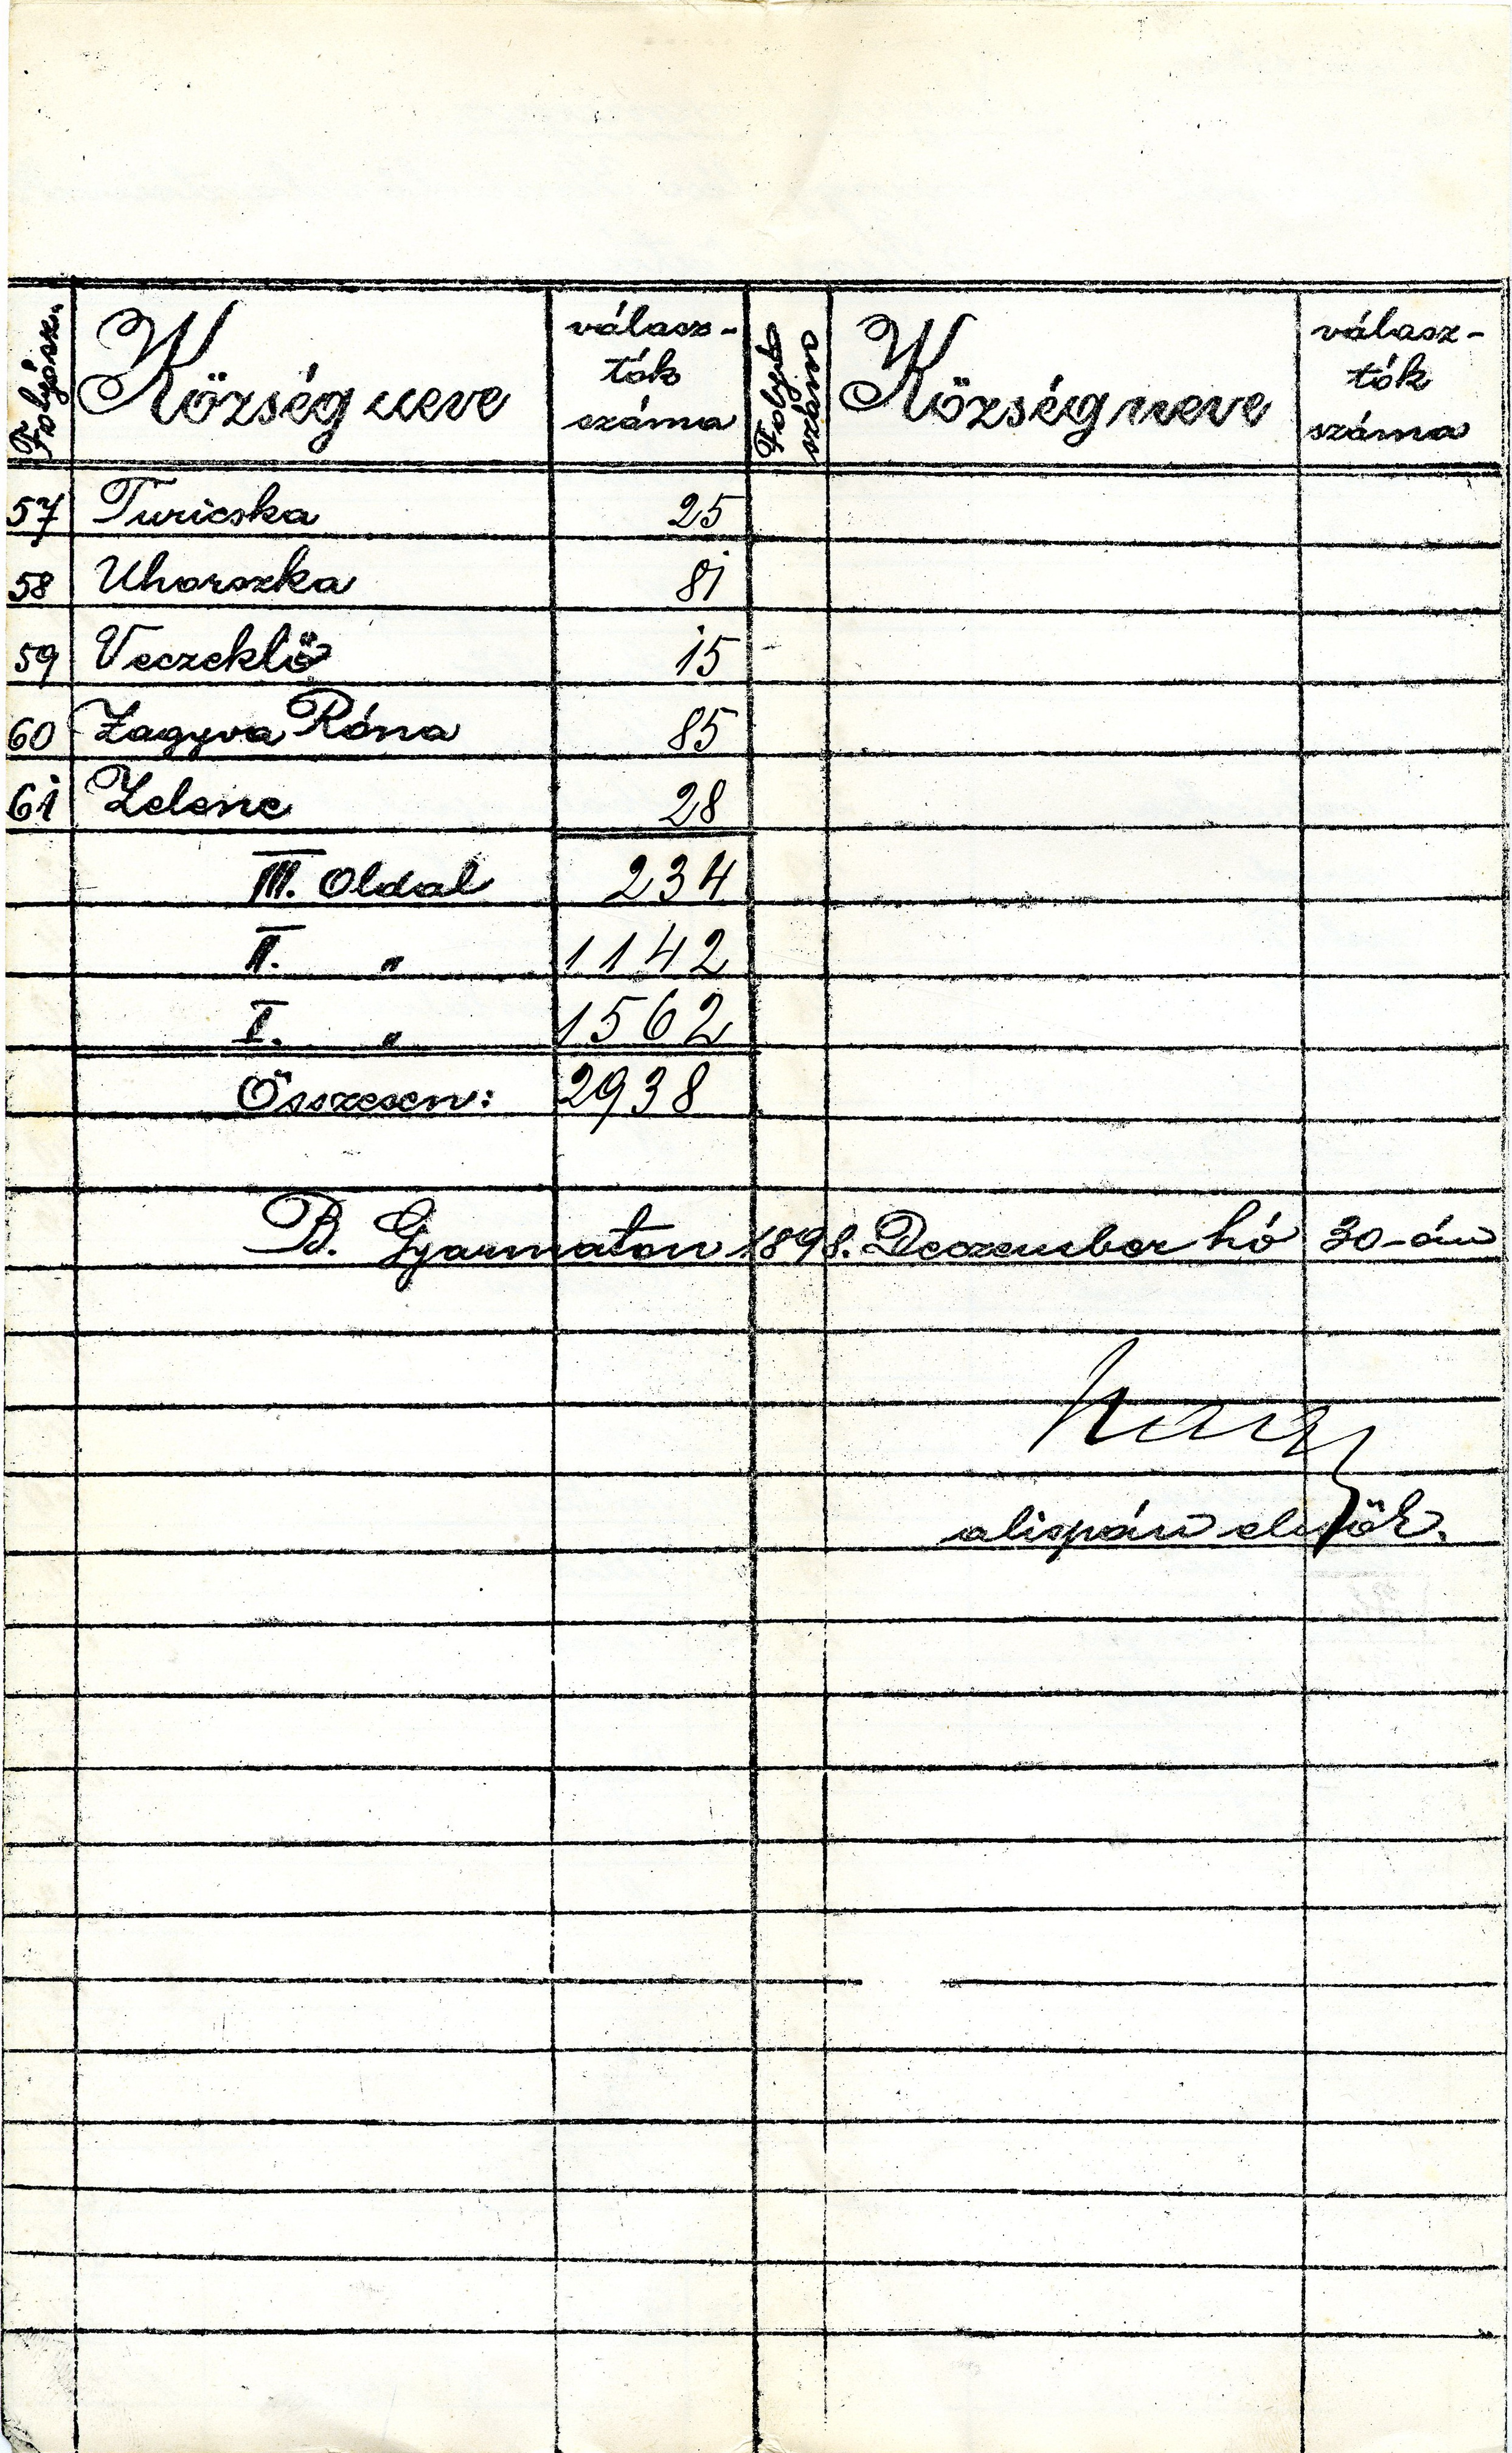 Folyósz.
Község neve
válasz-
tók
száma
Folyó
száma
Község neve
válasz-
tók
száma
57 Turicska 25
58 Uhorszka 81
59 Veczeklő 15
60 Zagyva Róna 85
61 Zelene 28
III. Oldal 234
II. " 1142
I. " 1562
Összesen: 2938
B. Gyarmaton 1898. Deczember hó 30-án
alispán elnök.